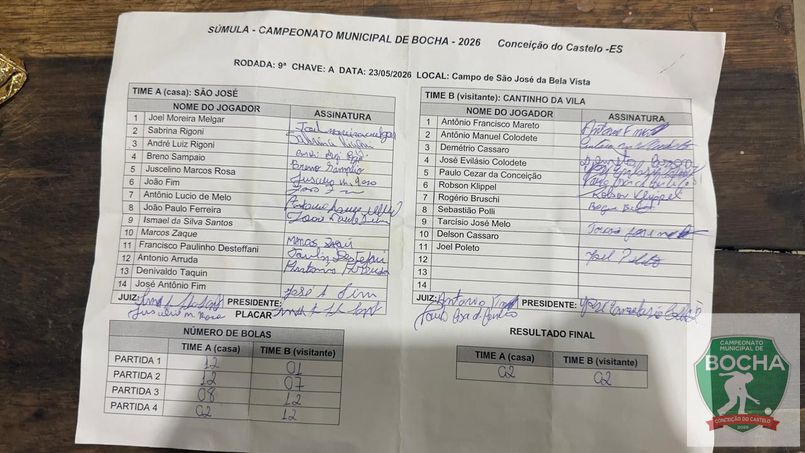 SÚMULA - CAMPEONATO MUNICIPAL DE BOCHA - 2026 Conceição do Castelo -ES
RODADA: 9ª CHAVE: A DATA: 23/05/2026 LOCAL: Campo de São José da Bela Vista
TIME A (casa): SÃO JOSÉ
NOME DO JOGADOR ASSINATURA
1 Joel Moreira Melgar
2 Sabrina Rigoni Sabrina Rigoni
3 André Luiz Rigoni
4 Breno Sampaio Breno Sampaio
5 Juscelino Marcos Rosa
6 João Fim
7 Antônio Lucio de Melo
8 João Paulo Ferreira
9 Ismael da Silva Santos
10 Marcos Zaque
11 Francisco Paulinho Desteffani
12 Antonio Arruda
13 Denivaldo Taquin
14 José Antônio Fim José A Fim
JUIZ: PRESIDENTE:
PLACAR
TIME B (visitante): CANTINHO DA VILA
NOME DO JOGADOR ASSINATURA
1 Antônio Francisco Mareto
2 Antônio Manuel Colodete
3 Demétrio Cassaro
4 José Evilásio Colodete
5 Paulo Cezar da Conceição
6 Robson Klippel Robson Klippel
7 Rogério Bruschi
8 Sebastião Polli
9 Tarcisio José Melo
10 Delson Cassaro
11 Joel Poleto Joel Poleto
12
13
14
JUIZ: PRESIDENTE:
NÚMERO DE BOLAS
TIME A (casa) TIME B (visitante)
PARTIDA 1 12 01
PARTIDA 2 12 07
PARTIDA 3 08 12
PARTIDA 4 02 12
RESULTADO FINAL
TIME A (casa) TIME B (visitante)
02 02
CAMPEONATO
MUNICIPAL DE
BOCHA
CONCEIÇÃO DO CASTELO
2026